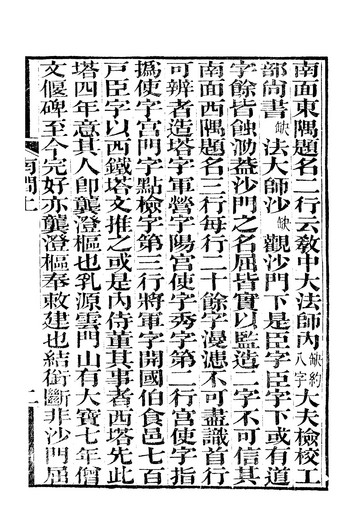 南面東隅題名二行云敎中大法師內缺約八字大夫檢校工
部尙書缺法大師沙缺觀沙門下是臣字臣字下或有道
字餘皆蝕泐葢沙門之名屈皆實以監造二字不可信其
南面西隅題名三行每行二十餘字漫滅不可盡識首行
可辨者造塔字軍營字陽宮使字秀字第二行宮使字指
撝使字宮門字點檢字第三行將軍字開國伯食邑七百
戸臣字以西鐵塔文推之或是內侍董其事者西塔先此
塔四年意其人卽龔澄樞也乳源雲門山有大寶七年僧
文偃碑至今完好亦龔澄樞奉敕建也結銜斷非沙門屈